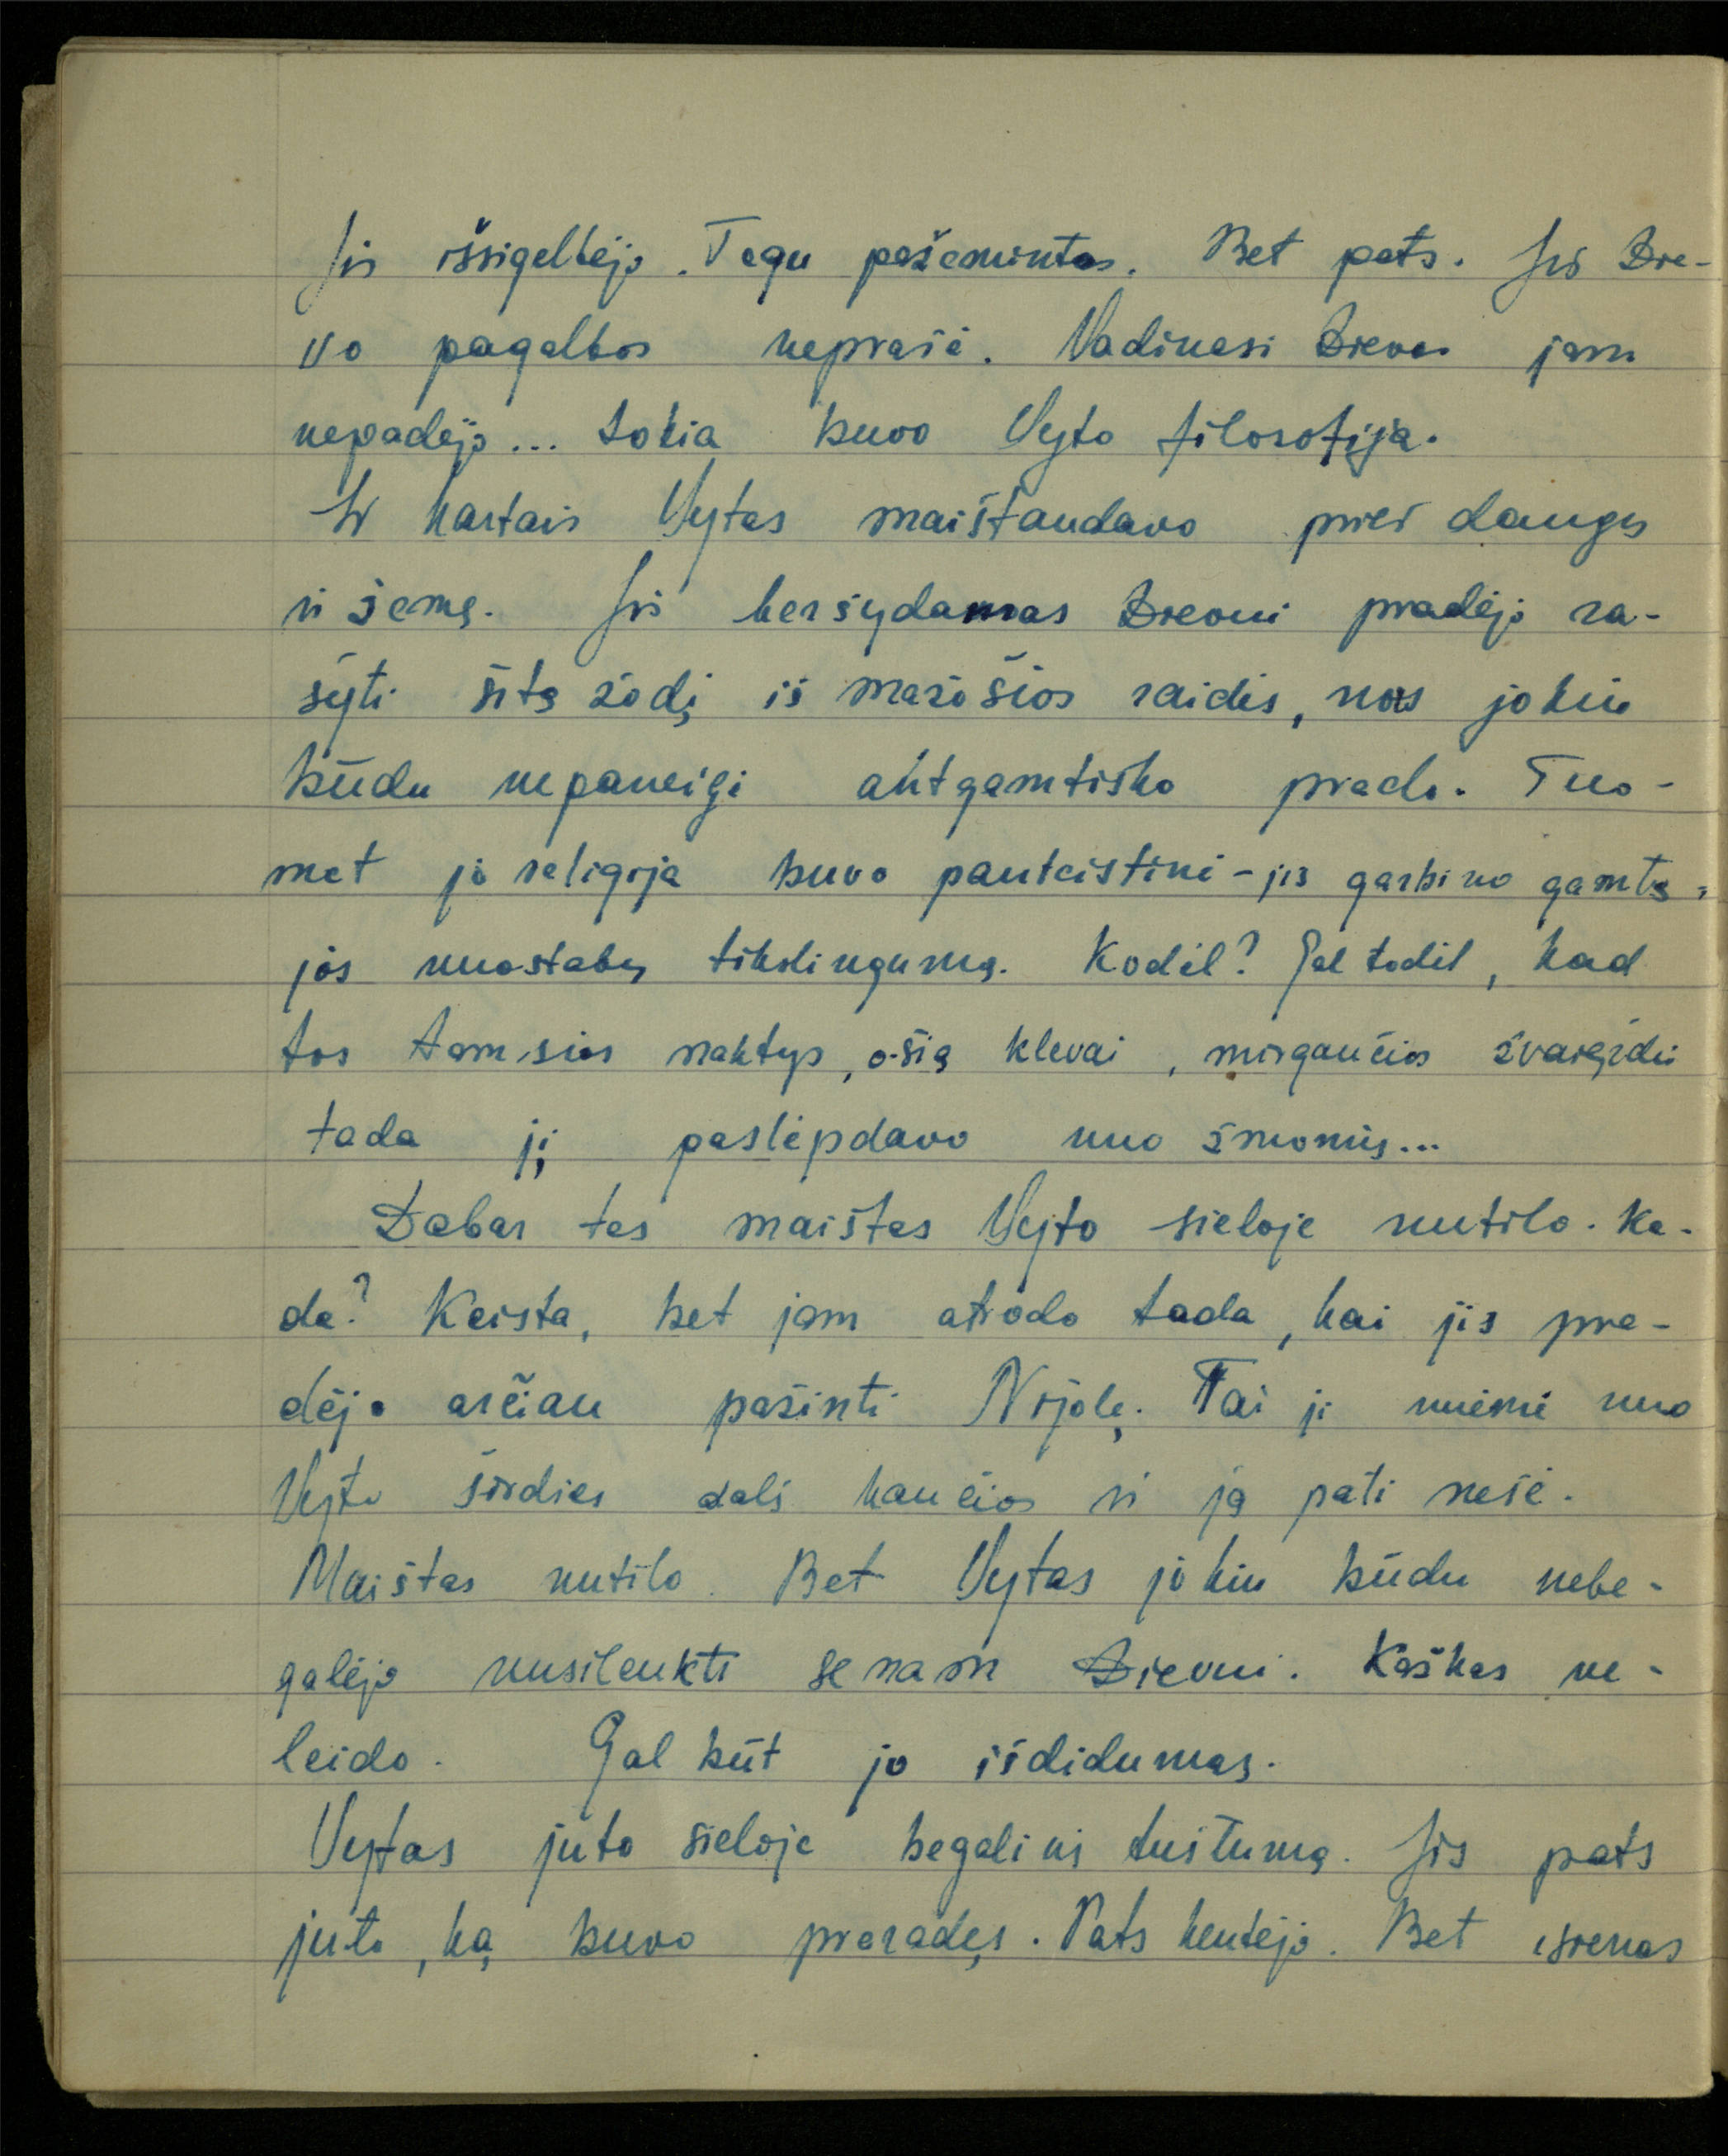 Jis išsigelbėjo. Tegu pažemintas. Bet pats. Jis Die-
vo pagalbos neprašė. Vadinasi Dievas jam
nepadėjo... tokia buvo Vyto filosofija.
Ir kartais Vytas maištaudavo prieš dangų
ir žemę. Jis keršydamas Dievui pradėjo ra-
šyti šitą žodį iš mažosios raidės, nors jokiu
būdu nepaneigė antgamtiško prado. Tuo-
met jo religija buvo panteistinė - jis garbino gamtą,
jos nuostabų tikslingumą. Kodėl? Gal todėl, kad
tos tamsios naktys, ošią klevai, mirgančios žvaigždės
tada jį paslėpdavo nuo žmonių...
Dabar tas maištas Vyto sieloje nutilo. Ka-
da? Keista, bet jam atrodo tada, kai jis pra-
dėjo arčiau pažinti Nijolę. Tai ji nuėmė nuo
Vyto širdies dalį kančios ir ją pati nešė.
Maištas nutilo. Bet Vytas jokiu būdu nebe-
galėjo nusilenkti senam Dievui. Kažkas ne-
leido. Gal būt jo išdidumas.
Vytas juto sieloje begalinį tuštumą. Jis pats
juto, ką buvo praradęs. Pats kentėjo. Bet išvenas